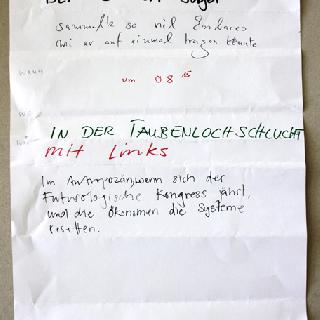 sammelte so viel
wie er auf einmal tragen konnte
wann
um 08 15
wo
IN DER TAUBENLOCHSCHLUCHT
mit Links
Im wenn sich der
Futurologische Kongress jährt,
und die Ökonomen die Systeme